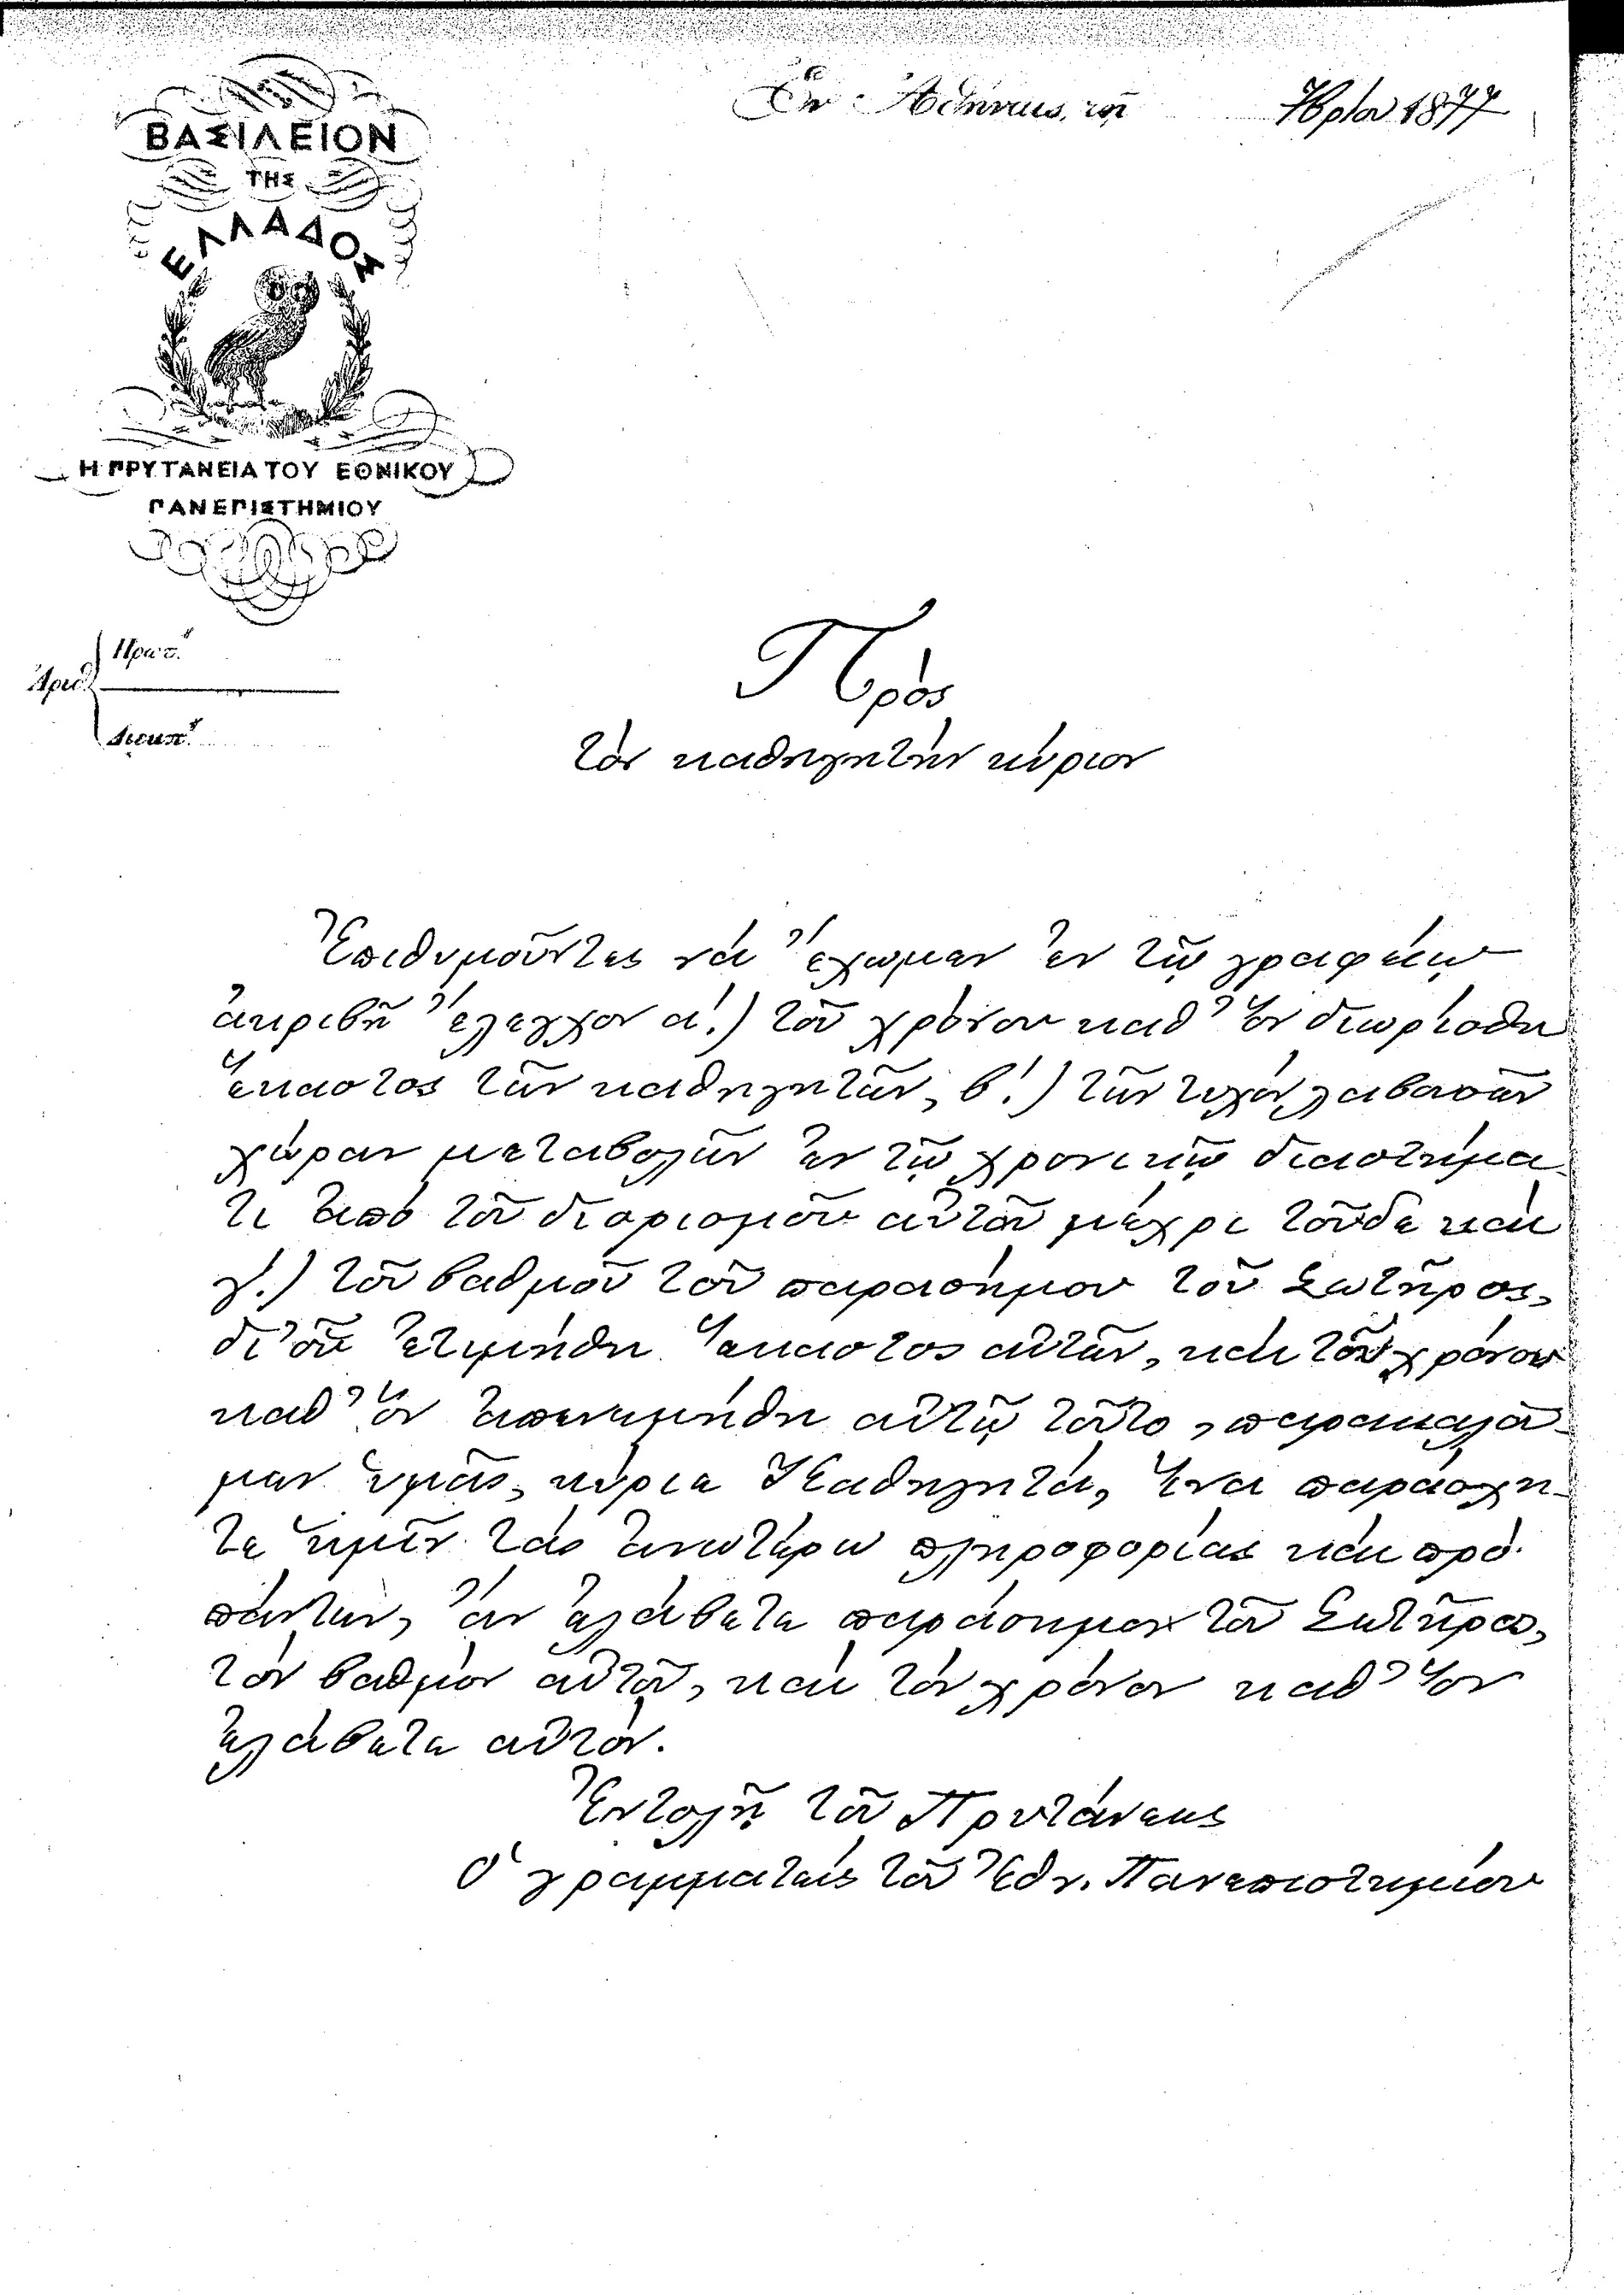 Ἐν Ἀθήναις, τῇ 7βρίου 1877
ΒΑΣΙΛΕΙΟΝ
ΤΗΣ
ΕΛΛΑΔΟΣ
Η ΠΡΥΤΑΝΕΙΑ ΤΟΥ ΕΘΝΙΚΟΥ
ΠΑΝΕΠΙΣΤΗΜΙΟΥ
Πρωτ.
Ἀριθ.
Διεκπ.
Πρὸς
τὸν καθηγητὴν κύριον
Ἐπιθυμοῦντες νὰ ἔχωμεν ἐν τῷ γραφείῳ
ἀκριβῆ ἔλεγχον α΄.) τοῦ χρόνου καθ' ὃν διωρίσθη
ἕκαστος τῶν καθηγητῶν, β΄.) τῶν τυχὸν λαβασῶν
χώραν μεταβολῶν ἐν τῷ χρονικῷ διαστήμα-
τι ἀπὸ τοῦ διορισμοῦ αὐτοῦ μέχρι τοῦδε καὶ
γ΄.) τοῦ βαθμοῦ τοῦ παρασήμου τοῦ Σωτῆρος,
δι' οὗ ἐτιμήθη ἕκαστος αὐτῶν, καὶ τοῦ χρόνου
καθ' ὃν ἀπενεμήθη αὐτῷ τοῦτο, παρακαλοῦ-
μεν ὑμᾶς, κύριε Καθηγητά, ἵνα παράσχη-
τε ἡμῖν τὰς ἀνωτέρω πληροφορίας καὶ πρὸ
πάντων, ἂν ἐλάβετε παράσημον τοῦ Σωτῆρος,
τὸν βαθμὸν αὐτοῦ, καὶ τὸν χρόνον καθ' ὃν
ἐλάβετε αὐτόν.
Ἐντολῇ τοῦ Πρυτάνεως
Ὁ γραμματεὺς τοῦ Ἐθν. Πανεπιστημίου